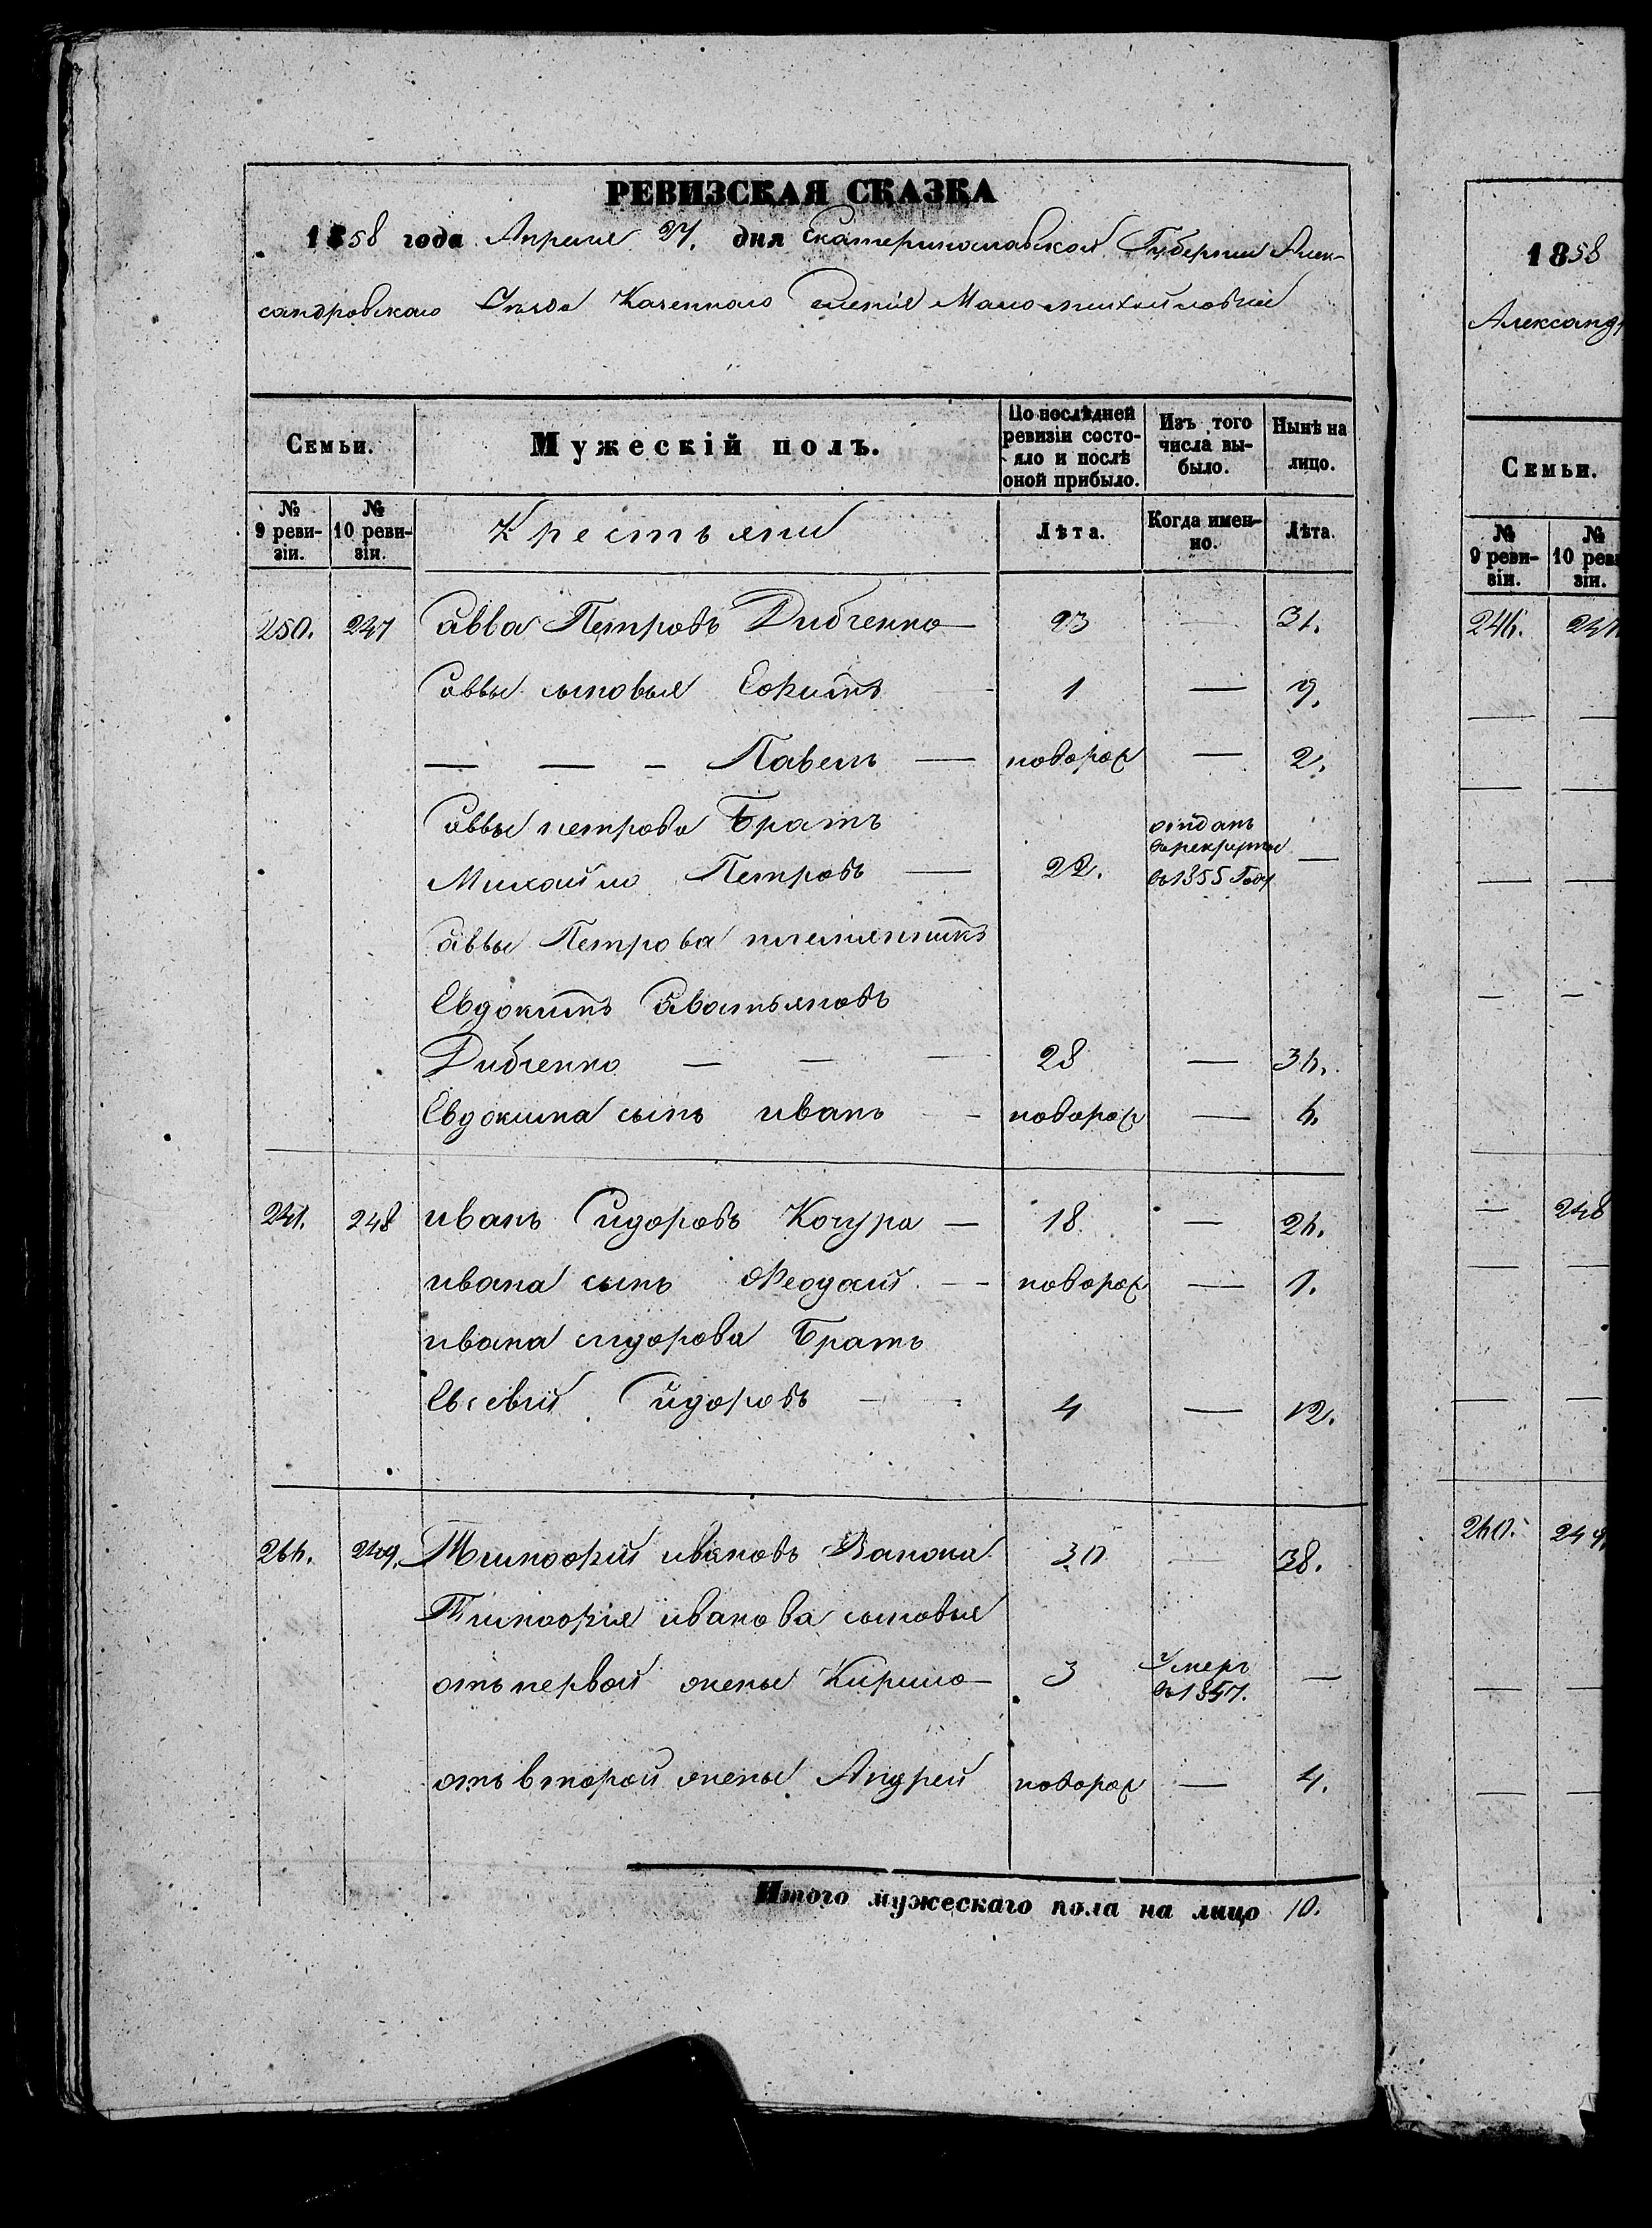 РЕВИЗСКАЯ СКАЗКА
1858 года Апреля 27. дня Екатеринославской Губернии Алек-
сандровскаго Уезда Казенного Селенія Маломихайловки
Семьи.
Мужескій полъ.
По послѣдней ревизіи состояло и послѣ оной прибыло.
Изъ того числа выбыло.
Нынѣ на лицо.
№ 9 ревизіи.
№ 10 ревизіи.
Крестьяни
Лѣта.
Когда именно.
Лѣта.
250. 247 Савва Петровъ Дибченко 23 — 31.
Саввы сыновья Еокимъ 1 — 9.
— — — Павелъ — новорож — 2.
Саввы петрова Братъ
Михайло Петровъ — 22. отданъ въ рекруты въ 1855 Году —
Саввы Петрова племенникъ
Евдокимъ Саватьяновъ
Дибченко — — — 28 — 36.
Евдокима сынъ иванъ — новорож — 6.
241. 248 иванъ Сидоровъ Кочура — 18 — 26.
ивана сынъ Феодосий — новорож — 1.
ивана сидорова Братъ
Евсевий Сидоровъ — 4 — 12.
264. 249. Тимофий ивановъ 30 — 38.
Тимофия иванова сыновья
отъ первой жены Кирило — 3 Умеръ въ 1857. —
отъ второй жены Андрей новорож — 4.
Итого мужескаго пола на лицо 10.
1858
Александр
Семьи.
№ 9 ревизіи.
№ 10 реви
зіи.
246. 247
— 248
260. 249